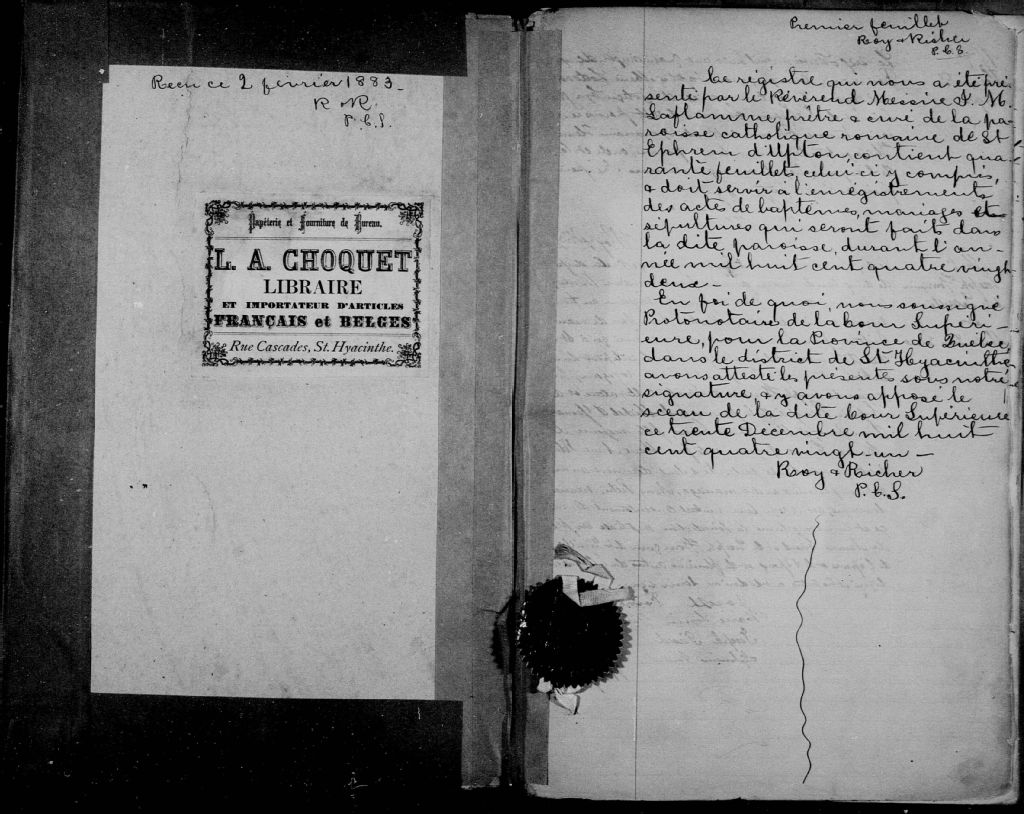 Recu ce 2 février 1883_
R & R.
P. C. S.
Papéterie et Fourniture de Bureau.
L. A. CHOQUET
LIBRAIRE
ET IMPORTATEUR D'ARTICLES
FRANÇAIS et BELGES
Rue Cascades, St. Hyacinthe.
Premier feuillet
Roy & Richer
P.C.S.
Ce régistre qui nous a été pré-
senté par le Révérend Messire J. M.
Laflamme, prêtre & curé de la pa-
roisse catholique romaine de St
Ephrem d'Upton, contient qua-
rante feuillets, celui-ci y compris,
& doit servir à l'enrégistrements
des actes de baptêmes, mariages et
sépultures qui seront faits dans
la dite paroisse, durant l'an-
née mil huit cent quatre vingt
deux-
En foi de quoi, nous soussigné
Protonotaire de la Cour Supéri-
eure, pour la Province de Québec
dans le district de St Hyacinthe
avons attesté les présentes sous notre
signature, & y avons apposé le
sceau de la dite Cour Supérieure
ce trente Décembre mil huit
cent quatre vingt-un-
Roy & Richer
P. C. S.